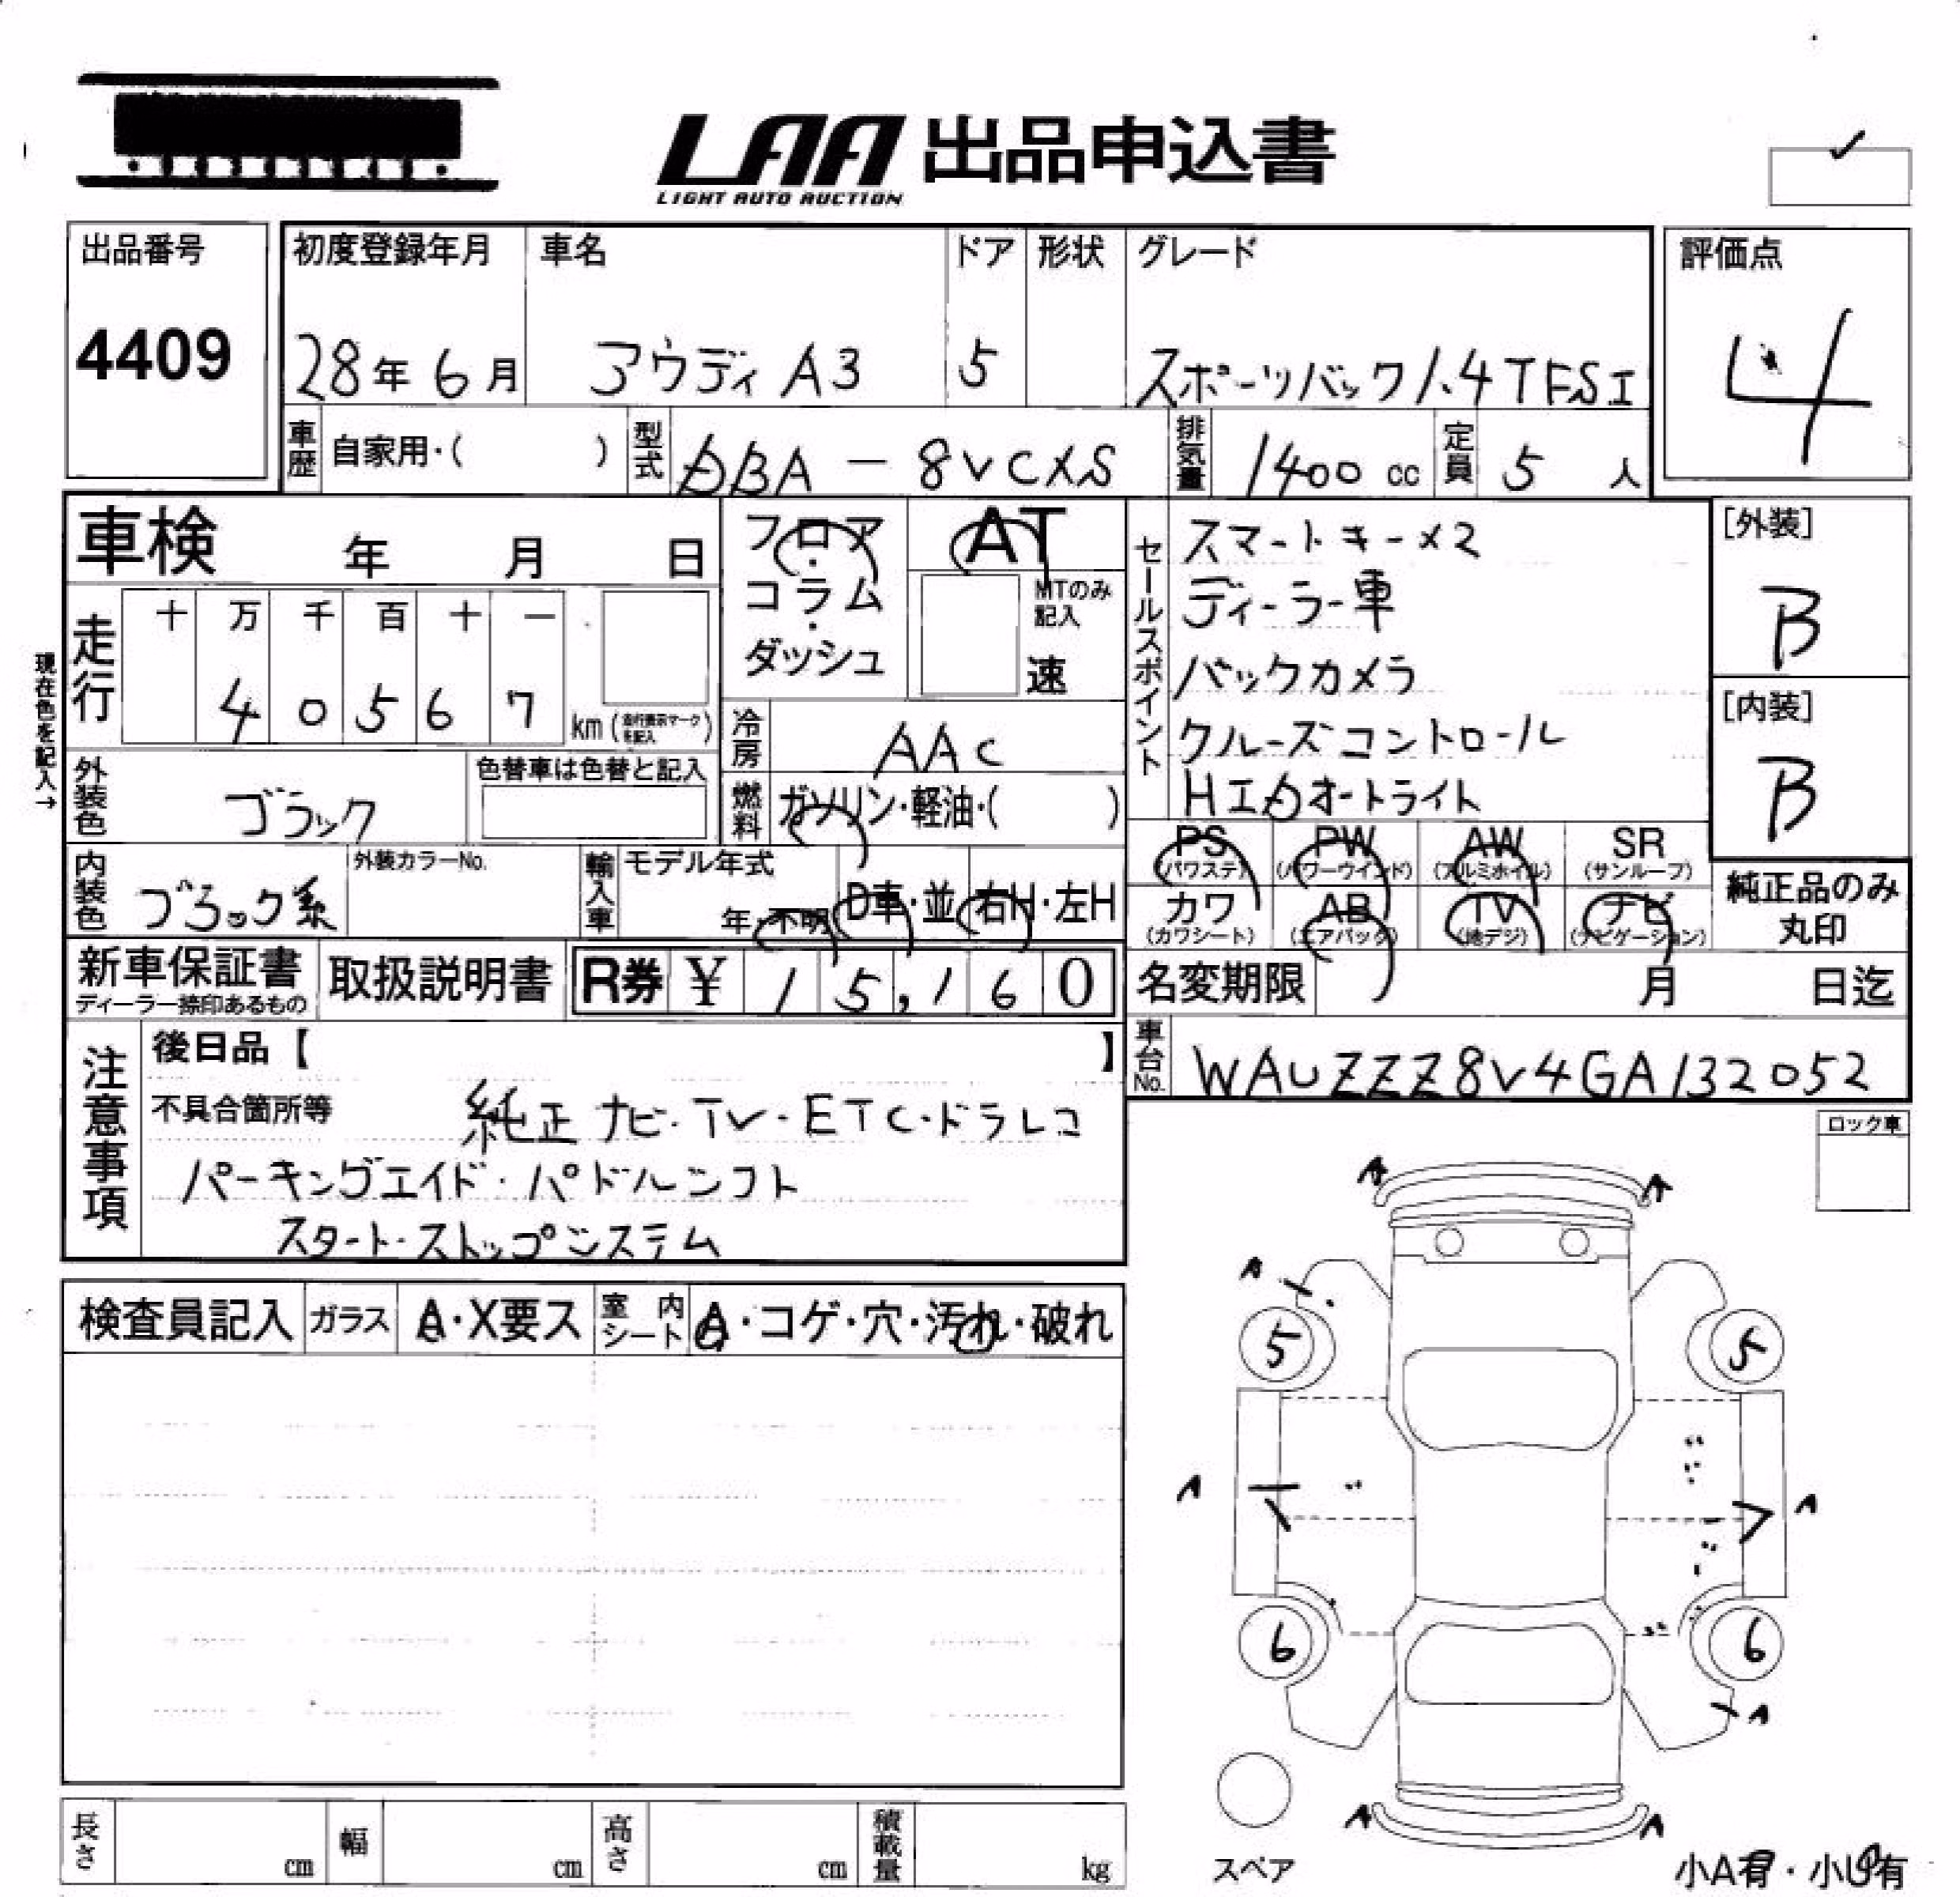 LAA 出品申込書
LIGHT AUTO AUCTION
出品番号 初度登録年月 車名 ドア 形状 グレード 評価点
4409 28年 6月 アウディ A3 5 スポーツバック1.4TFSI 4
車歴 自家用・( ) 型式 DBA-8VCXS 排気量 1400 cc 定員 5 人
車検 年 月 日 フロア・コラム・ダッシュ AT
MTのみ記入
速
走行 十 万 千 百 十 一
4 0 5 6 7 km
現在色を記入→
冷房 AAC
セールスポイント スマートキー×2
ディーラー車
バックカメラ
クルーズコントロール
HIDオートライト
[外装]
B
[内装]
B
外装色 ブラック 色替車は色替と記入
燃料 ガソリン・軽油・( )
内装色 ブラック系 外装カラーNo. 輸入車 モデル年式 年・不明 D車・並 右H・左H
PS (パワステ) PW (パワーウインド) AW (アルミホイル) SR (サンルーフ)
カワ (カワシート) AB (エアバック) TV (地デジ) ナビ (ナビゲーション)
純正品のみ
丸印
新車保証書 ディーラー捺印あるもの 取扱説明書 R券 ¥ 15,160
名変期限 月 日迄
車台No. WAUZZZ8V4GA132052
注意事項 後日品【 】
不具合箇所等 純正ナビ・TV・ETC・ドラレコ
パーキングエイド・パドルシフト
スタート・ストップシステム
ロック車
検査員記入 ガラス A・X要ス 室内シート A・コゲ・穴・汚れ・破れ
A A
A
5 5
A A
6 6
A
A A
スペア
小A有・小U有
長さ cm 幅 cm 高さ cm 積載量 kg